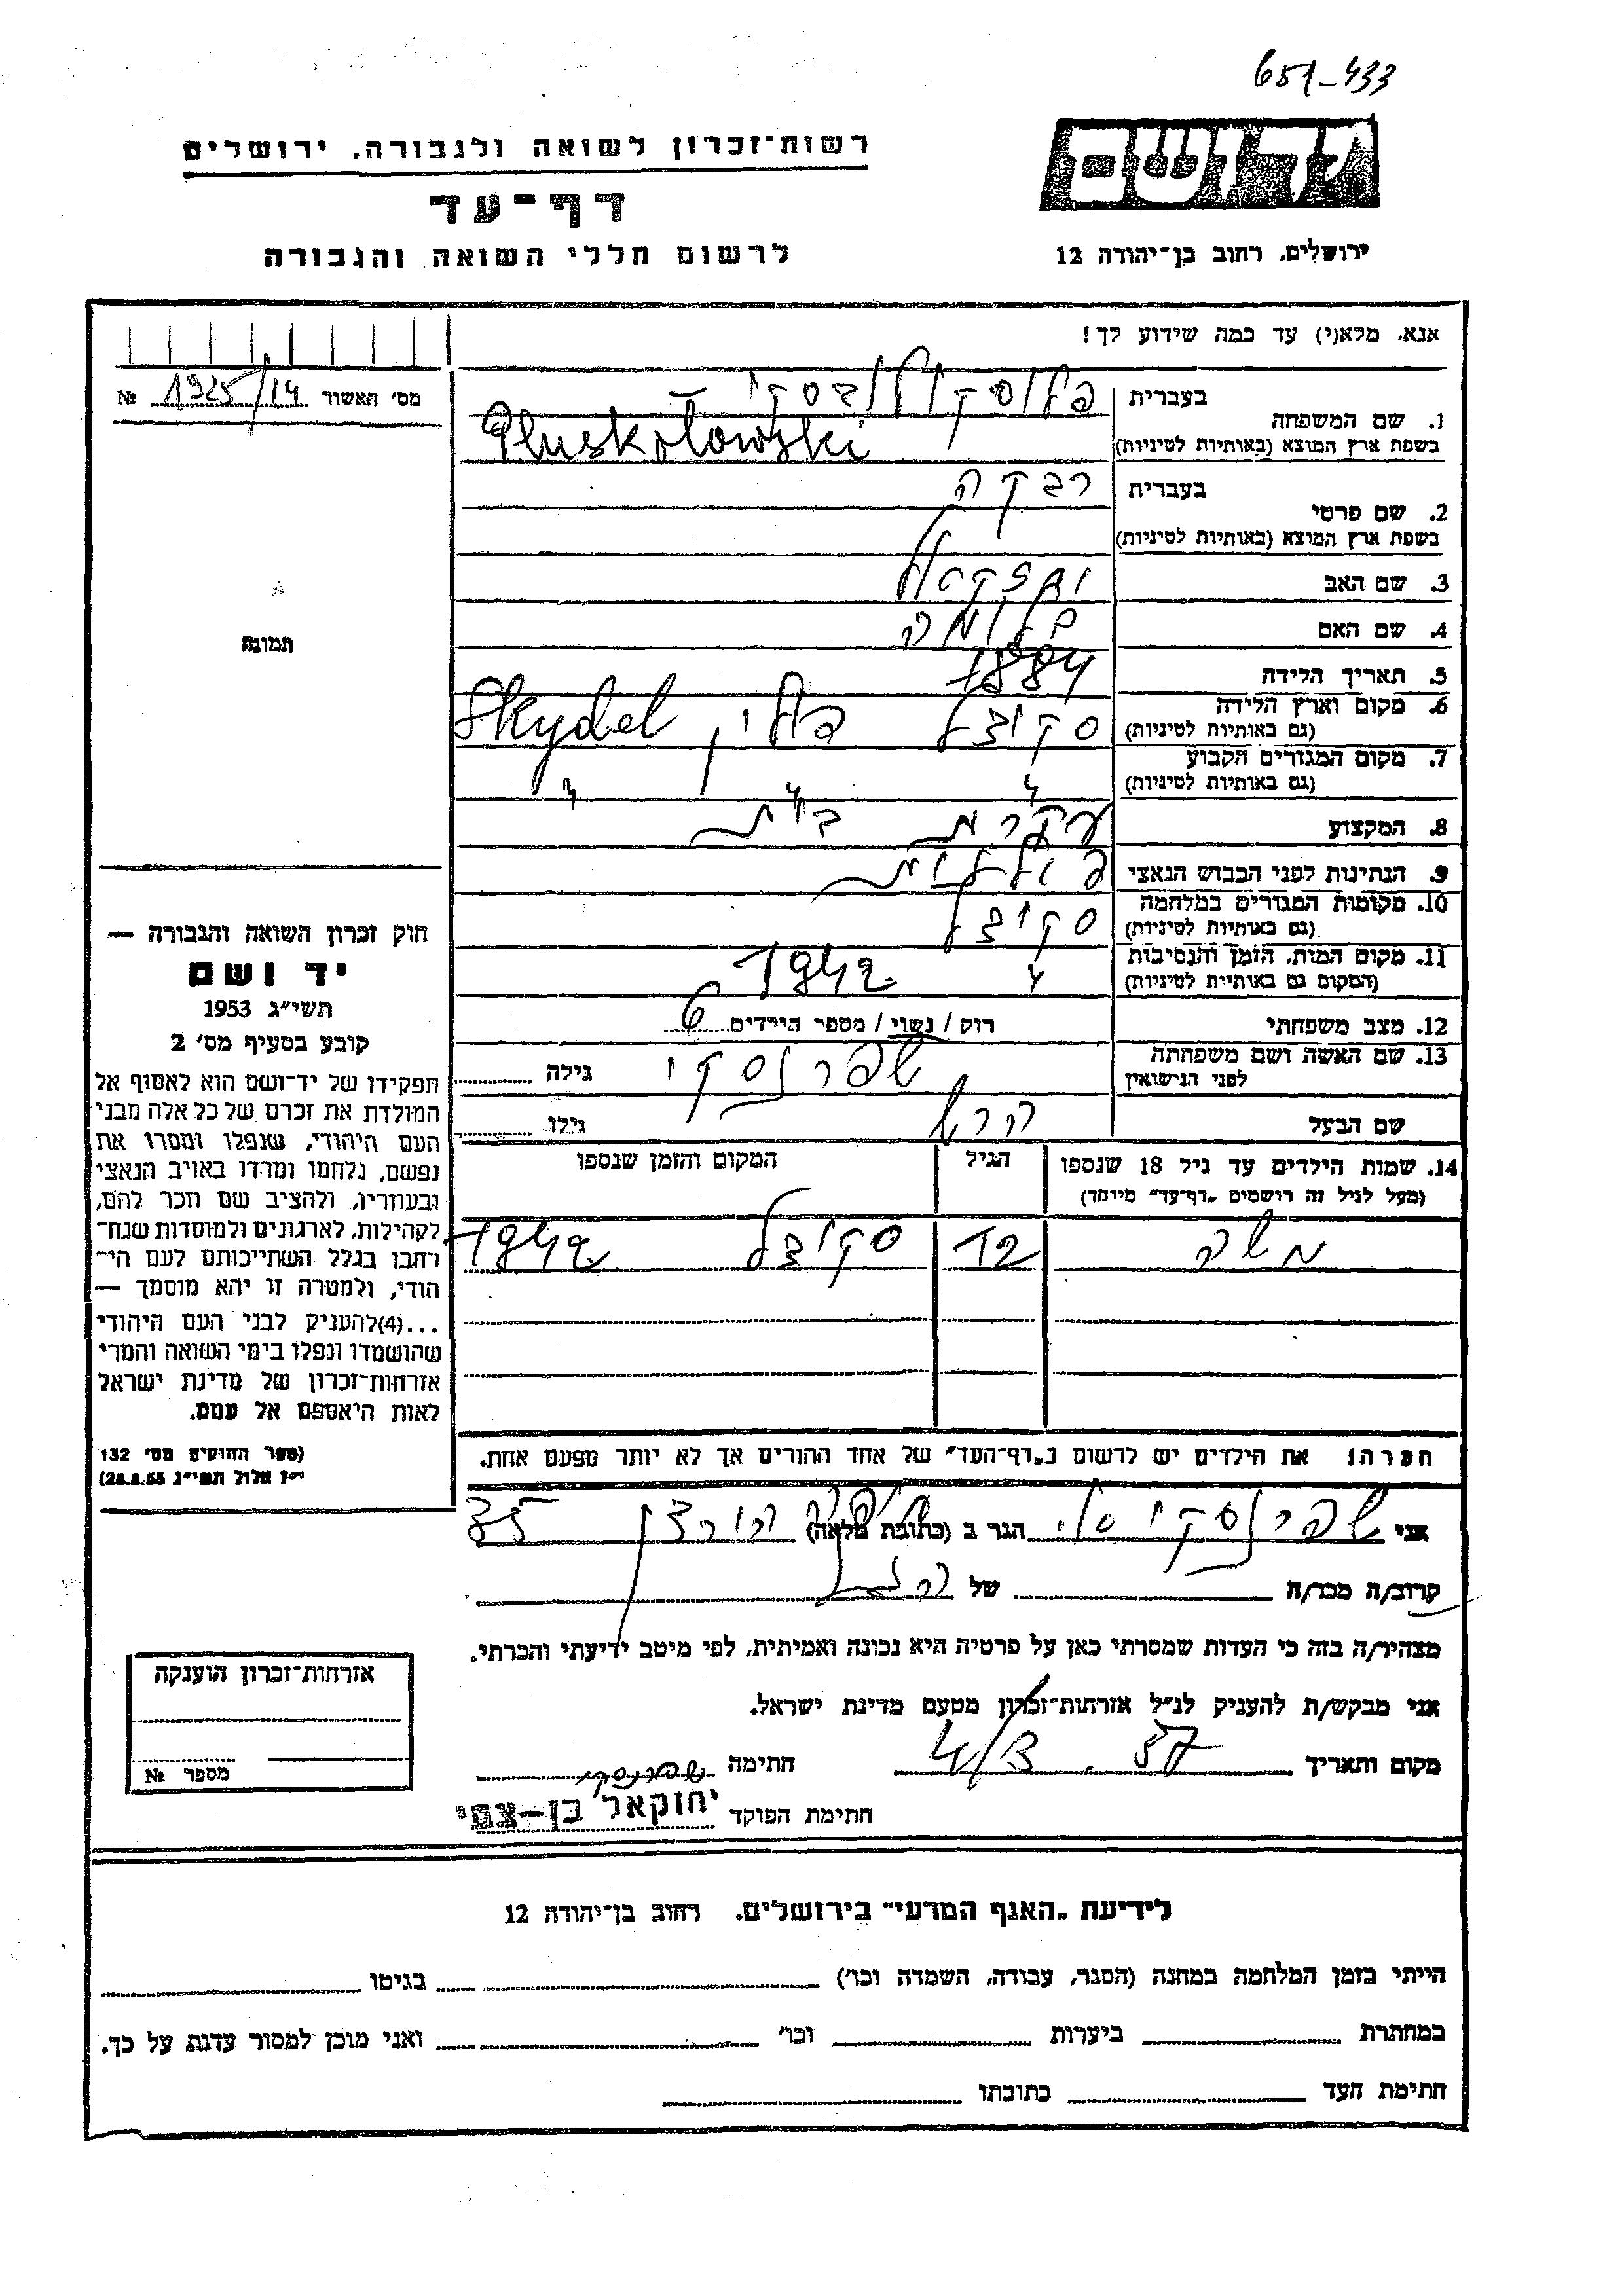 651-433
רשות־זכרון לשואה ולגבורה, ירושלים
דף־עד
לרשום חללי השואה והגבורה
ידושם
ירושלים, רחוב בן־יהודה 12
אנא, מלא(י) עד כמה שידוע לך!
מס׳ האשור 1925/14 №
1. שם המשפחה בעברית פלוסקולובסקי
בשפת ארץ המוצא (באותיות לטיניות) Pluskołowski
2. שם פרטי בעברית רבקה
בשפת ארץ המוצא (באותיות לטיניות)
3. שם האב
4. שם האם בלומה
5. תאריך הלידה 1884
6. מקום וארץ הלידה סקידל פולין Skydel
(גם באותיות לטיניות)
7. מקום המגורים הקבוע " " "
(גם באותיות לטיניות)
8. המקצוע עקרת בית
9. הנתינות לפני הכבוש הנאצי פולנית
10. מקומות המגורים במלחמה סקידל
(גם באותיות לטיניות)
11. מקום המות, הזמן והנסיבות " 1942
(המקום גם באותיות לטיניות)
12. מצב משפחתי רוק / נשוי / מספר הילדים 6
13. שם האשה ושם משפחתה שפרנסקי גילה
לפני הנישואין
שם הבעל גילו
14. שמות הילדים עד גיל 18 שנספו הגיל המקום והזמן שנספו
(מעל לגיל זה רושמים „דף־עד״ מיוחד)
משה 12 סקידל 1942
תמונה
חוק זכרון השואה והגבורה —
יד ושם
תשי״ג 1953
קובע בסעיף מס׳ 2
תפקידו של יד־ושם הוא לאסוף אל
המולדת את זכרם של כל אלה מבני
העם היהודי, שנפלו ומסרו את
נפשם, נלחמו ומרדו באויב הנאצי
ובעוזריו, ולהציב שם וזכר להם,
לקהילות, לארגונים ולמוסדות שנח־
רבו בגלל השתייכותם לעם הי־
הודי, ולמטרה זו יהא מוסמך —
...(4) להעניק לבני העם היהודי
שהושמדו ונפלו בימי השואה והמרי
אזרחות־זכרון של מדינת ישראל
לאות היאספם אל עמם.
(ספר החוקים מס׳ 132
י״ז אלול תשי״ג 28.8.53)
הערה! את הילדים יש לרשום ב„דף־העד״ של אחד ההורים אך לא יותר מפעם אחת.
אני שפרנסקי הגר ב (כתובת מלאה) 35
קרוב/ה מכר/ה של
מצהיר/ה בזה כי העדות שמסרתי כאן על פרטיה היא נכונה ואמיתית, לפי מיטב ידיעתי והכרתי.
אני מבקש/ת להעניק לנ״ל אזרחות־זכרון מטעם מדינת ישראל.
מקום ותאריך 4/3.57 חתימה שפרנסקי
חתימת הפוקד יחזקאל בן-צבי
אזרחות־זכרון הוענקה
מספר №
לידיעת „האגף המדעי״ בירושלים, רחוב בן־יהודה 12
הייתי בזמן המלחמה במחנה (הסגר, עבודה, השמדה וכו׳) בגיטו
במחתרת ביערות וכו׳ ואני מוכן למסור עדות על כך.
חתימת העד כתובתו